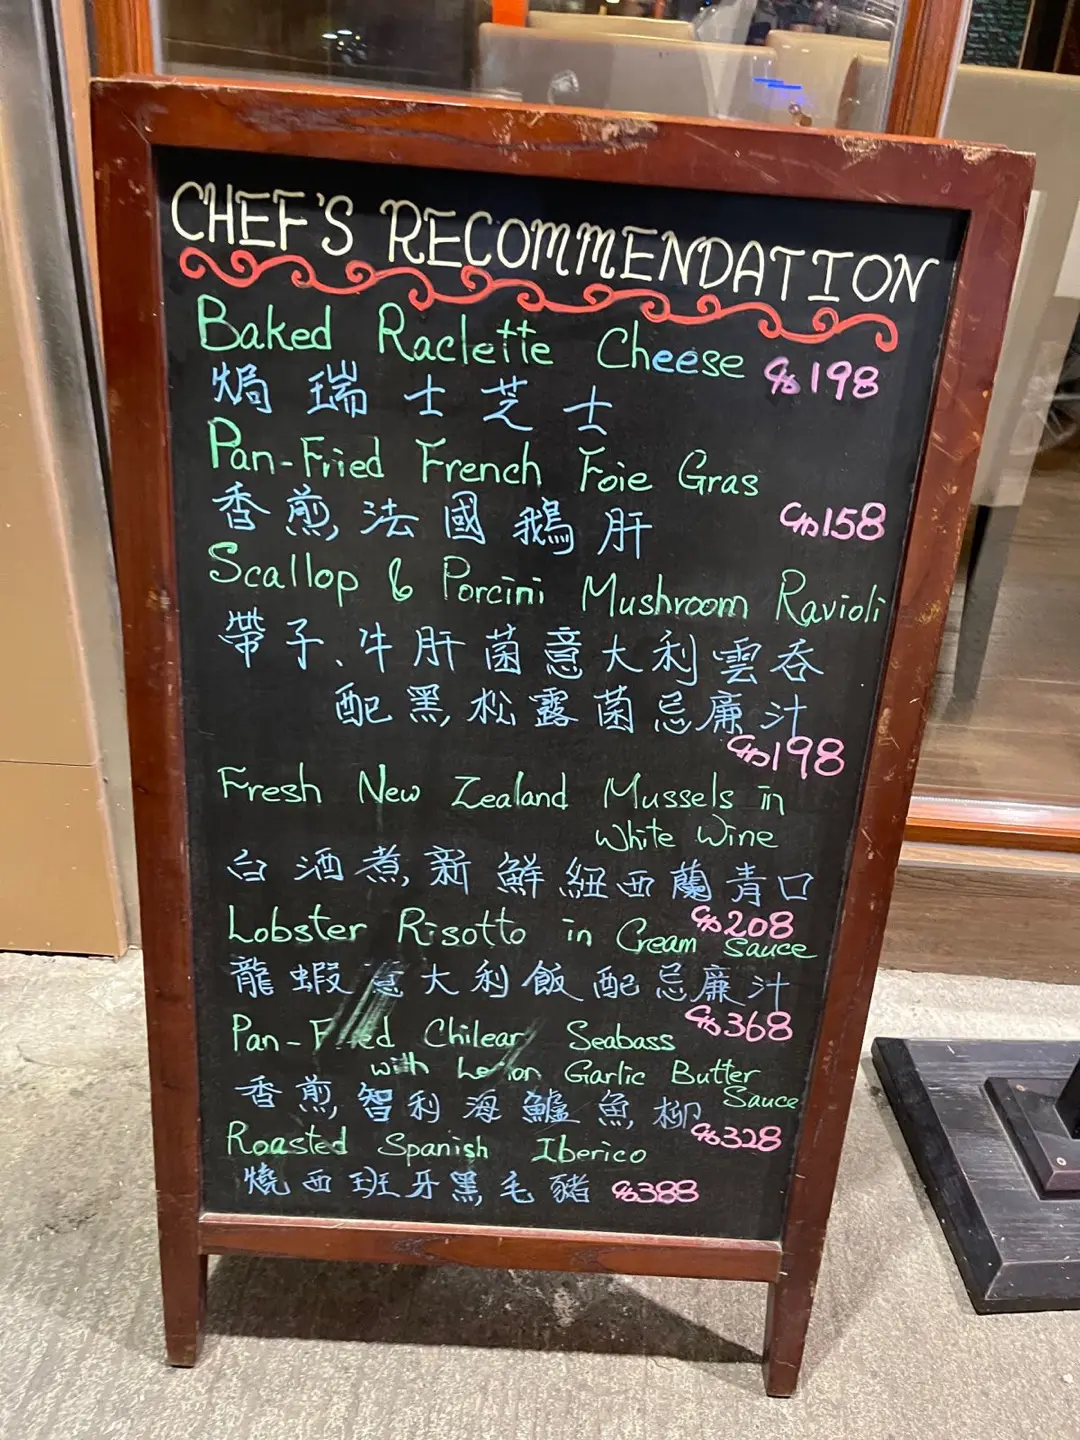 CHEF'S RECOMMENDATION
Baked Raclette Cheese
$198
焗瑞士芝士
Pan-Fried French Foie Gras
香煎法國鵝肝
$158
Scallop & Porcini Mushroom Ravioli
帶子、牛肝菌意大利雲吞
配黑松露菌忌廉汁
$198
Fresh New Zealand Mussels in
White Wine
白酒煮新鮮紐西蘭青口
$208
Lobster Risotto in Cream Sauce
龍蝦意大利飯配忌廉汁
$368
Pan-Fried Chilear Seabass
with Lemon Garlic Butter
Sauce
香煎智利海鱸魚柳
$328
Roasted Spanish Iberico
燒西班牙黑毛豬 $388